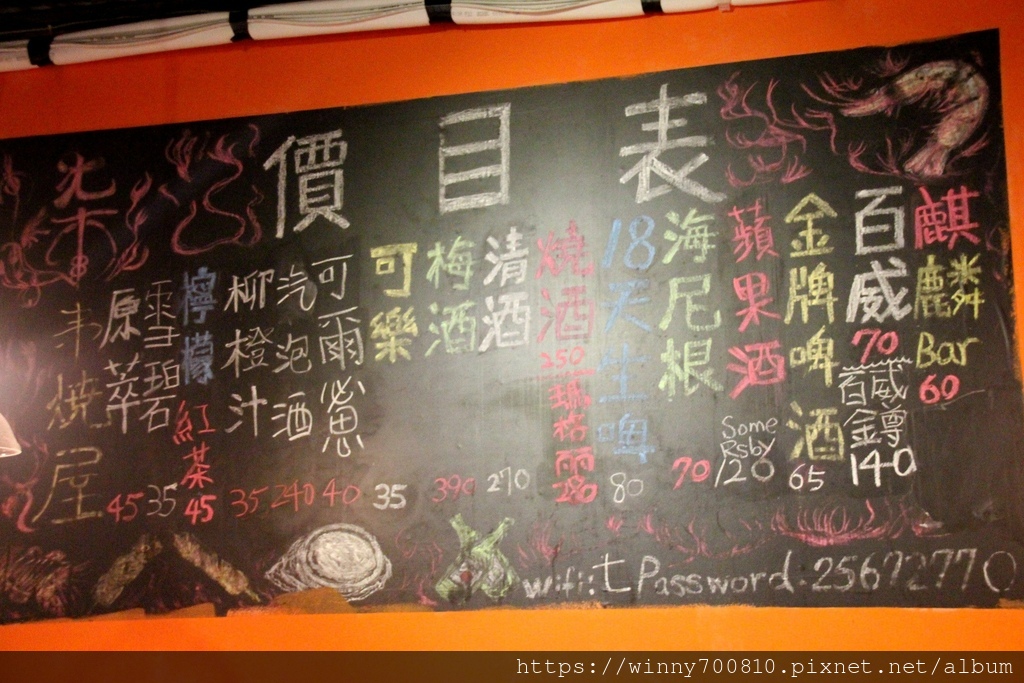 價目表
麒麟Bar 60
百威 70
百威金鐏 140
金牌啤酒 65
蘋果酒
Some
Rsby
120
海尼根 70
18天生啤 80
燒酒 250
瑪格麗 280
清酒 270
梅酒 390
可樂 35
可爾必思 40
汽泡酒 240
柳橙汁 35
檸檬紅茶 45
雪碧 35
原萃 45
柒串燒屋
wifi:七 Password:25672770
https://winny700810.pixnet.net/album